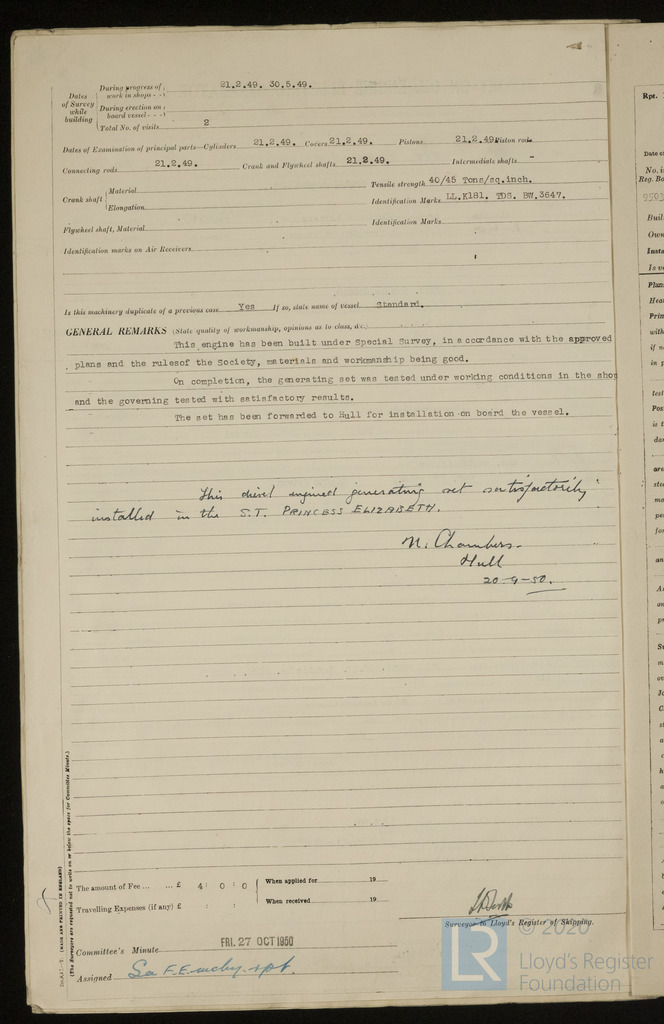 Dates of Survey while building
During progress of work in shops - - 21.2.49. 30.5.49.
During erection on board vessel - - -
Total No. of visits 2
Dates of Examination of principal parts—Cylinders 21.2.49. Covers 21.2.49. Pistons 21.2.49. Piston rods
Connecting rods 21.2.49. Crank and Flywheel shafts 21.2.49. Intermediate shafts "
Crank shaft Material Tensile strength 40/45 Tons/sq.inch.
Elongation Identification Marks LL.K181. TDS. BW.3647.
Flywheel shaft, Material Identification Marks
Identification marks on Air Receivers
Is this machinery duplicate of a previous case Yes If so, state name of vessel Standard.
GENERAL REMARKS (State quality of workmanship, opinions as to class, &c.)
This engine has been built under Special Survey, in accordance with the approved
plans and the rulesof the Society, materials and workmanship being good.
On completion, the generating set was tested under working conditions in the shop
and the governing tested with satisfactory results.
The set has been forwarded to Hull for installation on board the vessel.
This diesel engined generating set satisfactorily
installed in the S.T. PRINCESS ELIZABETH.
N. Chambers.
Hull
20-9-50.
The amount of Fee ... ... £ 4 : 0 : 0 When applied for 19
Travelling Expenses (if any) £ : : When received 19
Surveyor to Lloyd's Register of Shipping.
Committee's Minute FRI. 27 OCT 1950
Assigned See F.E. mchy. rpt.
(MADE AND PRINTED IN ENGLAND)
(The Surveyors are requested not to write on or below the space for Committee Minute.)
© 2020
LR Lloyd's Register
Foundation
Rpt.
Date o
No. i
Reg. Bo
Buil
Own
Insta
Is v
Plan
Hea
Prin
with
if n
in p
test
Pos
is t